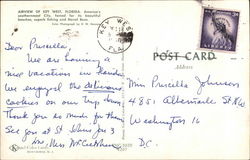 AIRVIEW OF KEY WEST, FLORIDA. America's
southernmost City, famed for its beautiful
beaches, superb fishing and Naval Base.
KEY WEST
FLA.
LIBERTY
POST CARD
Address
Dear Priscilla
We are having a
nice vacation in Florida
We enjoyed the delicious
cookies on our trip down
Thank you so much for them
See you at St. Johns
Mr. Mrs
Miss Priscilla Johnson
4851 Albemarle St. NW
Washington 16
D.C